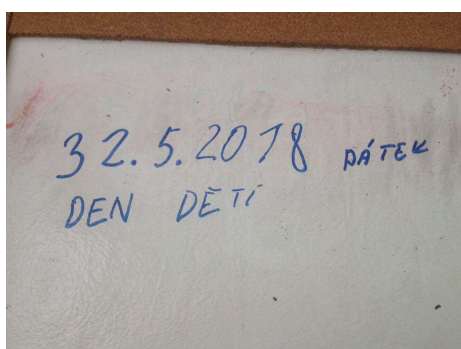 32.5.2018 PÁTEK
DEN DĚTÍ